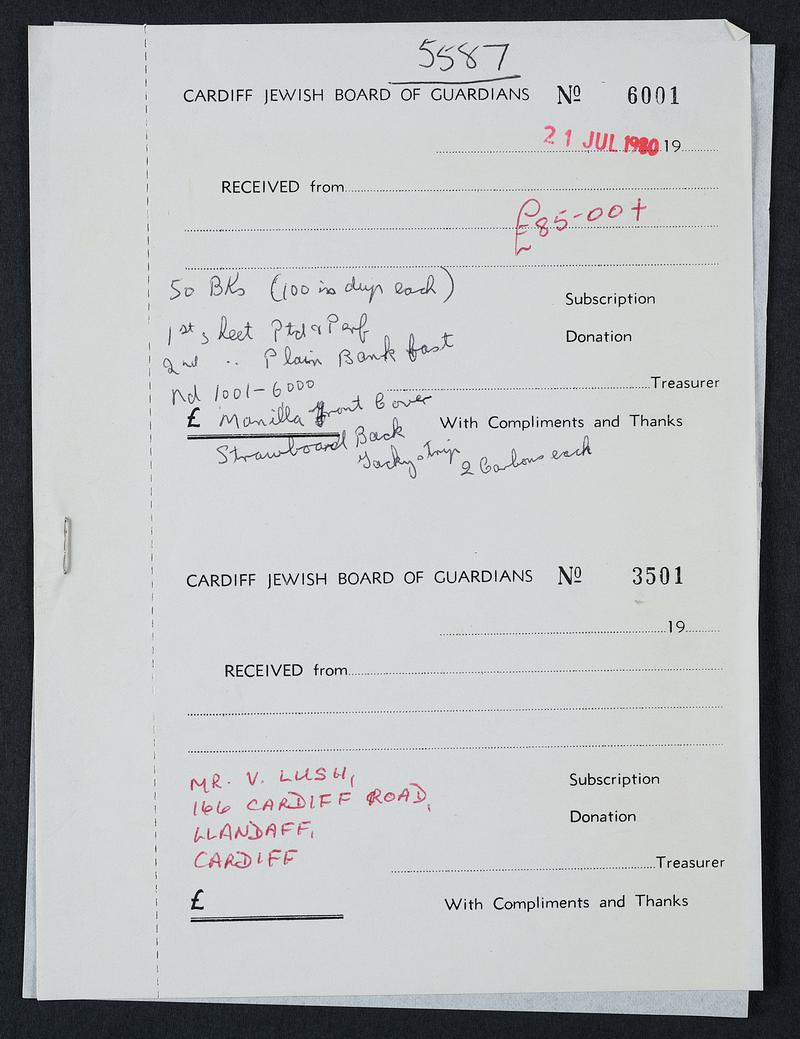 5587
CARDIFF JEWISH BOARD OF GUARDIANS Nº 6001
21 JUL 1980 19
RECEIVED from
£85-00+
50 BKs (100 in dup each)
Subscription
1st sheet Ptd & Perf
Donation
2nd " Plain Bank fast
Nd 1001-6000
Treasurer
£ Manilla front Cover
With Compliments and Thanks
Strawboard Back
Tacky strip 2 Carbons each
CARDIFF JEWISH BOARD OF GUARDIANS Nº 3501
19
RECEIVED from
MR. V. LUSH,
Subscription
166 CARDIFF ROAD,
Donation
LLANDAFF,
CARDIFF
Treasurer
£
With Compliments and Thanks